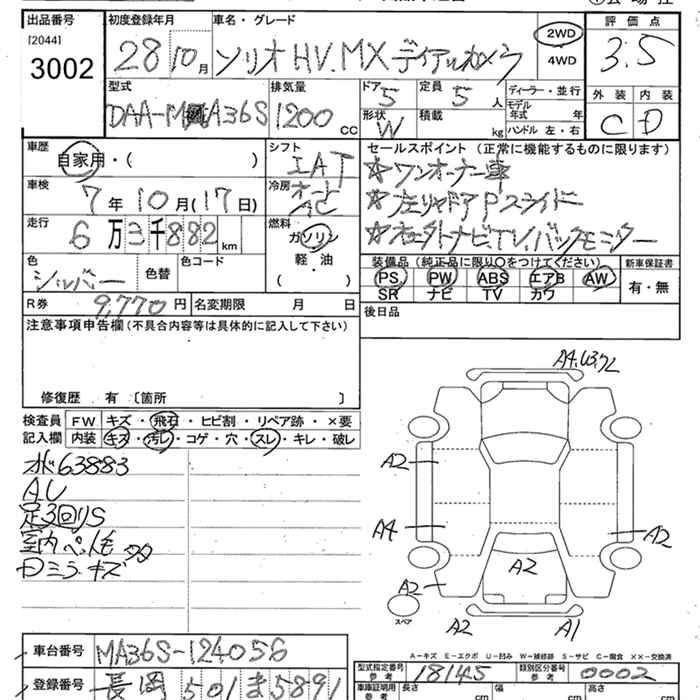 出品番号
[2044]
3002
初度登録年月
28 10月
車名・グレード
ソリオHV.MX デュアルカメラ
2WD
4WD
評価点
3.5
型式
DAA-MA36S
排気量
1200 CC
ドア 5
定員 5人
形状 W
積載 kg
ディーラー・並行
モデル年式 年
ハンドル 左・右
外装 内装
C D
車歴
自家用・( )
シフト
IAT
車検
7年10月(17日)
冷房
オート
AC
走行
6万3千882km
燃料
ガソリン
軽・油
( )
色
シルバー
色替
色コード
R券 9,770円
名変期限 月 日
セールスポイント (正常に機能するものに限ります)
☆ワンオーナー車
☆左リヤドアPスライド
☆ナビTV.バックモニター
装備品 (純正品に限り○をつけてください)
PS PW ABS エアB AW
SR ナビ TV カワ
新車保証書
有・無
後日品
注意事項申告欄 (不具合内容等は具体的に記入して下さい)
修復歴 有 〔箇所 〕
検査員記入欄
FW キズ・飛石・ヒビ割・リペア跡・×要
内装 キズ・汚レ・コゲ・穴・スレ・キレ・破レ
63883
AU
足3回りS
室内ペット毛
Dミラキズ
A4.U3.
A2
A4
A2
A2
A2
A2
A1
スペア
A-キズ E-エクボ U-凹み W-補修跡 S-サビ C-腐食 XX-交換済
車台番号 MA36S-124056
登録番号 長岡 501 ま 5891
型式指定番号 参考 18145
類別区分番号 参考 0002
車庫証明用 参考
長さ cm
幅 cm
高さ cm